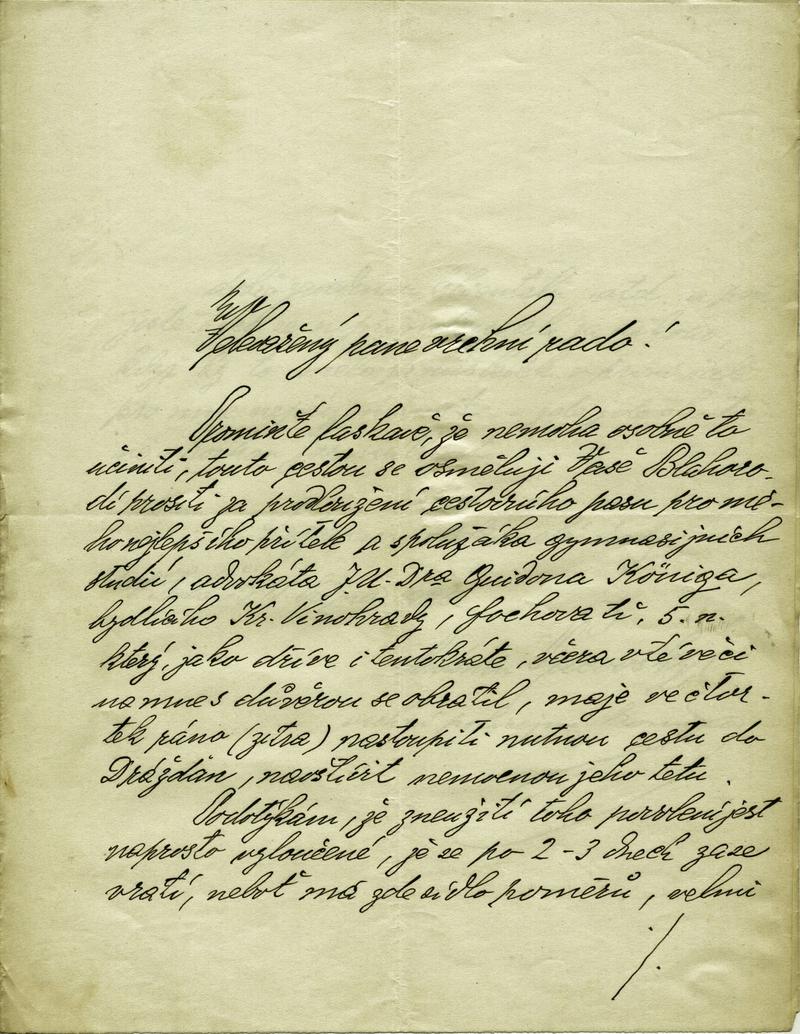 Velevážený pane vrchní rado!
Promiňtě laskavě, že nemoha osobně to
učiniti, touto cestou se osměluji Vaše Blahoro-
dí prositi za prodloužení cestovního pasu pro mé-
ho nejlepšího přítele a spolužáka gymnasijních
studií, advokáta J.U.Dra Guidona Königa,
bydlícího Kr. Vinohrady, Fochova tř. 5. n.
který, jako dříve i tentokráte, včera v té věci
na mne s důvěrou se obrátil, maje ve čtvr-
tek ráno (zítra) nastoupiti nutnou cestu do
Drážďan, navštívit nemocnou jeho tetu.
Podotýkám, že zneužití toho povolení jest
naprosto vyloučené, že se po 2-3 dnech zase
vrátí, neboť má zde sídlo poměrů, velmi
./.